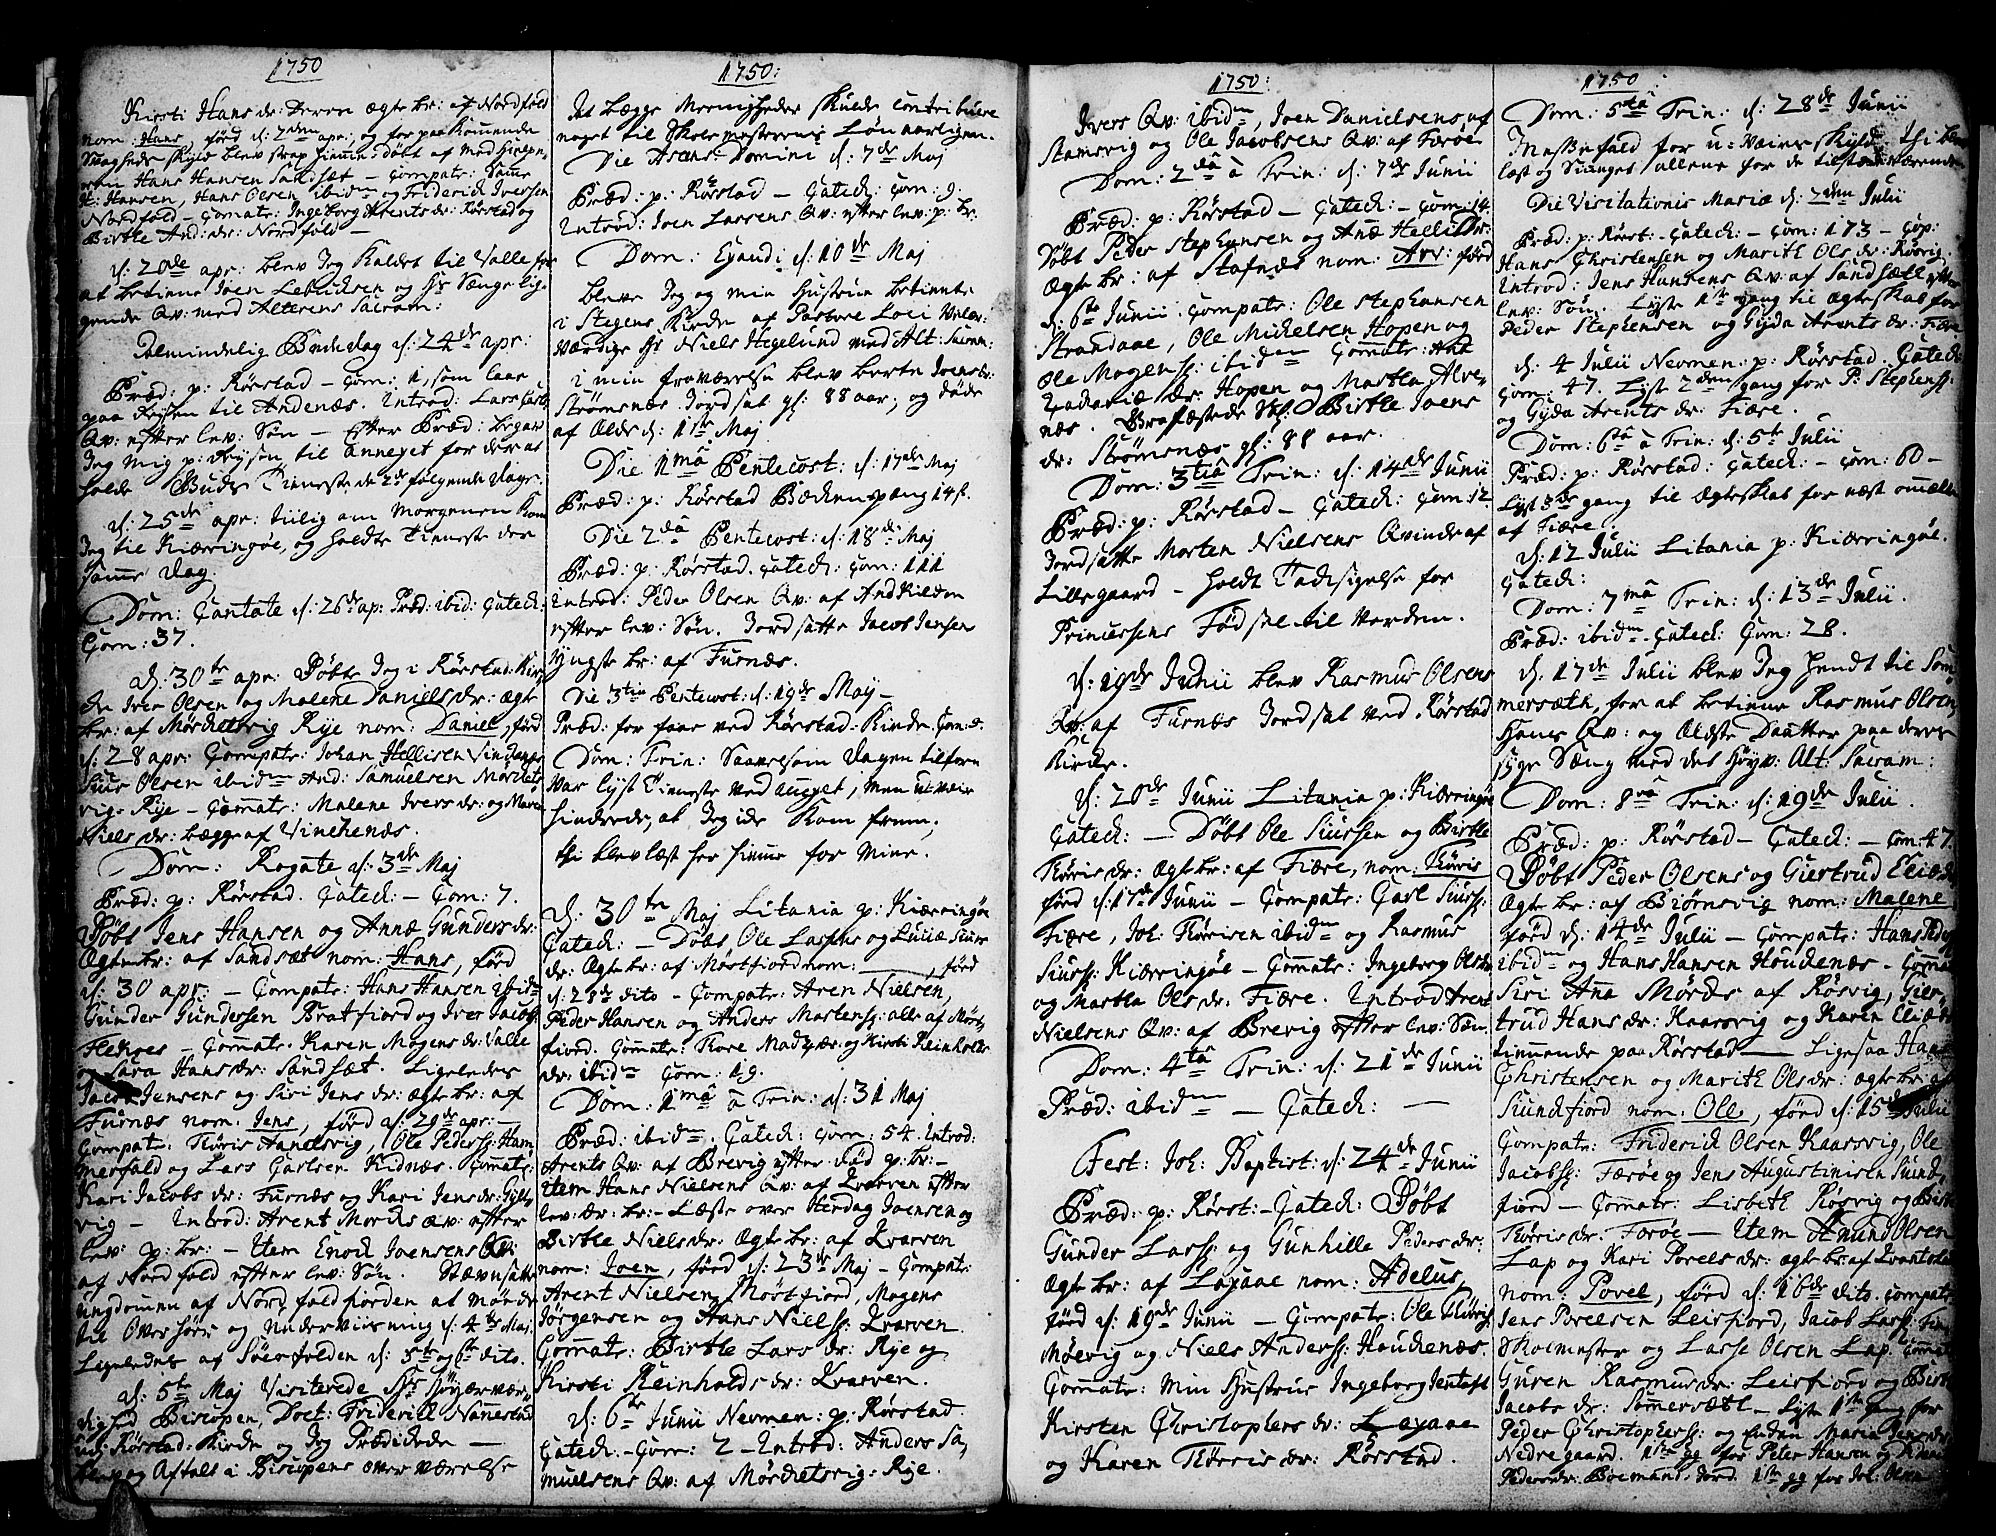 1750
Kirsti Hans dr: deres ægte br: af Nordfold
nom: Hans, fød d: 2den apr: og for paakommende
Svagheds skyld blev strax hiemme døbt af medhielpe-
ren Hans Hansen Sandset – Compatr: Samme
H: Hansen, Hans Olsen ibidm og Friderich Iversen
Nordfold – Commatr: Ingeborg Arentsdr: Rørstad og
Birthe And: dr: Nordfold –
d: 20de apr: blev Jeg kaldet til Valle for
at betiene Joen Lebichsen og Hs Senge lig-
gende Qv: med Alterens Sacram:
Almindelig Bededag d: 24de apr:
Præd: p: Rørstad – Com: 1, som laae
paa Reysen til Andenæs. Introd: Lars
Qv: efter lev: Søn – Efter Præd: begav
Jeg mig p: Reysen til annexet for der at
holde Guds Tieneste de 2de følgende Dage.
d: 25de apr: tiilig om Morgenen kom
Jeg til Kierringøe, og holdte tieneste der
samme Dag.
Dom: Cantate d: 26de ap: Præd: ibid: Catech:
Com: 37.
d: 30te apr: Døbte Jeg i Rørstad: Kir-
ke Iver Olsen og Malene Daniels dr: ægte
br: af Mørchetsvig Rye nom: Daniel, fød
d: 28 apr: Compatr: Johan Hellisen Vindenæs
Siur Olsen ibidm And: Samuelsen Mørchets
vig: Rye – Commatr: Malene Ivers dr: og Maren
Niels dr: begge af Vinchenæs.
Dom: Rogate d: 3de Maj
Præd: p: Rørstad. Catech: – Com: 7.
Døbt Jens Hansen og Anne Gunders dr:
Ægte br: af Sandsæt nom: Hans, fød
d: 30 apr: – Compatr: Hans Hansen ibidm
Gunder Gundersen Bratfiord og Iver Jacobs:
– Commatr: Karen Mogens dr: Valle
og Sara Hans dr: Sandsæt. Ligeledes
Jacob Jensens og Siri Jens dr: ægte br: af
Furnæs nom: Jens, fød d: 29de apr: –
Compatr: Thøris Tanelsvig, Ole Peders: Ham
merfald og Lars Carlsen Kidnæs. Commatr:
Kari Jacobs dr: Furnæs og Kari Jens dr:
vig – Introd: Arent Mords qv: efter
lev: p: br: – Item Enoch Joensens Qv:
af Nordfold efter lev: Søn. Stævnsatte
ungdommen af Nordfoldfiorden at møde
til Overhør og underviisning d: 4de Maj.
Ligeledes af Sørfolden d: 5te og 6te dito.
d: 5te Maj Visiterede Hs Høyærvær-
dighed Biscopen, Doct: Friderich Nannestad
ud: Rørstad: Kirke og Jeg Prædikede –
blev og aftalt i Biscopens overværelse
1750:
At begge Meenigheder skulde contribuere
noget til Skolemesterens Løn aarligen.
Die Ascens: Domini d: 7de Maj
Præd: p: Rørstad – Catech: Com: 9.
Introd: Joen Larsens Qv: efter lev: p: br:
Dom: Exaudi d: 10de Maj
blev Jeg og min Hustrue betient
i Stegens Kirke af Pastore Loci Velær-
værdige Hs Niels Hegelund med Alt: Sacram:
i min fraværelse blev berte Joens dr:
Strømsnæs Jordsat gl: 88 aar, og døde
af Ælde d: 1ste Maj
Die 1ma Pentecost: d: 17de Maj
Præd: p: Rørstad Beckengang 14 s.
Die 2da Pentecost: d: 18de Maj
Præd: p: Rørstad. Catech: Com: 111
Introd: Peder Olsen Qv: af Andkilden
efter lev: Søn. Jordsatte Jacob Jensen
yngste br: af Furnæs.
Die 3tia Pentecost: d: 19de Maj –
Præd: for faae ved Rørstad: Kirke. Com: 8.
Dom: Trin: Saavelsom dagen tilforn
var lyst Tieneste ved annexet, men u: veir
hindrede, at Jeg ide kom frem,
thi blev læst her hiemme for mine.
d: 30te Maj Litania p: Kierringøe
Catech: – Døbt Ole Larsens og Lucie Siurs
dr: ægte br: af Møstfiord nom: ____, fød
d: 28de dito – Compatr: Aren Nielsen,
Peder Hansen og Anders Mortens: alle af Møst-
fiord. Commatr: Thore Mads dr: og Kirsti Reinholts
dr: ibidm Com: 19.
Dom: 1ma à Trin: d: 31 Maj
Præd: ibidm. Catech: Com: 54. Introd:
Arents Qv: af Brevig efter død p: br: –
item Hans Nielsens Qv: af Qvarven efter
lev: br: – Læste over Herdag Joensen og
Birthe Niels dr: ægte br: af Qvarven
nom: Joen, fød d: 23de Maj – Compatr:
Arent Nielsen Møstfiord, Mogens
Jørgensen og Hans Niels: Qvarven.
Commatr: Birthe Lars dr: Rye og
Kirsti Reinholds dr: Qvarven.
d: 6te Junii Nevmen: p: Rørstad
Catech: – Com: 2 – Introd: Anders Sa,
muelsens Qv: af Mørchetsvig: Rye.
1750:
Ivers Qv: ibidm, Joen Danielsens af
Stamsvig og Ole Jacobsens Qv: af Færøe
Dom: 2da à Trin: d: 7de Junii
Præd: p: Rørstad – Catech: – Com: 14.
Døbt Peder Stephansen og Ane Hellis dr:
ægte br: af Stafnæs nom: Arv: fød
d: 6te Junii. Compatr: Ole Stephansen
Strandaae, Ole Michelsen Hopen og
Ole Mogens: ibidm Commatr: Ane
Zachariæ dr: Hopen og Martha Alve-
næs. Brafæstede Birthe Joens
dr: Strømsnæs gl: 88 aar.
Dom: 3tia Trin: d: 14de Junii
Præd: p: Rørstad – Catech: Com: 12
Jordsatte Morten Nielsens Qvinde af
Lillegaard – holdt Tacksigelse for
Princessens Fødsel til Verden.
d: 19de Junii blev Rasmus Olsens
Qv: af Furnæs Jordsat ved Rørstad
Kirke.
d: 20de Junii Litania p: Kierringøe
Catech: – Døbt Ole Siursen og Birthe
Thøris dr: ægte br: af Fiære, nom: Thøris
fød d: 17de Junii – Compatr: Carl Siurs:
Fiære, Joh: Thørisen ibidm og Rasmus
Siurs: Kierringøe – Commatr: Ingeborg Ols dr:
og Martha Ols dr: Fiære. Introd Arent
Nielsens Qv: af Brevig efter lev: Søn
Dom: 4ta Trin: d: 21de Junii
Præd: ibidm – Catech: –
Fest: Joh: Baptist: d: 24de Junii
Præd: p: Rørst: – Catech: Døbt
Gunder Lars: og Gunhille Peders dr:
ægte br: af Laxaae nom: Adelus,
fød d: 19de Junii – Compatr: Ole Thøris:
Møevig og Niels Anders: Houchenæs.
Commatr: Min Hustrue Ingeborg Jentoft
Kirsten Christophers dr: Laxaae
og Karen Thørris dr: Rørstad.
1750
Dom: 5ta Trin: d: 28de Junii
Messefald for u: Veirs skyld, thi blev
læst og Siunget allene for de tilstædeværende
Die Visitationis Mariæ d: 2den Julii
Præd: p: Rørst: – Catech: – Com: 173 – Cop:
Hans Christensen og Marith Ols dr: Røsvig.
Introd: Jens Hansens Qv: af Sandsæth efter
lev: Søn. Lyste 1ste gang til Ægteskab for
Peder Stephensen og Gyda Arents dr: Fiære
d: 4 Julii Nevmen: p: Rørstad. Catech:
Com: 47. Lyst 2den gang for P: Stephens:
og Gyda Arents dr: Fiære.
Dom: 6ta à Trin: d: 5te Julii
Præd: p: Rørstad: Catech: – Com: 60 –
Lyst 3die gang til Ægteskab for næst ommelte
af Fiære.
d: 12 Julii Litania p: Kierringøe.
Catech:
Dom: 7ma Trin: d: 13de Julii.
Præd: ibidm. Catech: Com: 28.
d: 17de Julii blev Jeg hendt til Som-
mersæth, for at betiene Rasmus Olsen,
Hans Qv: og Ældste Daatter paa deres
syge Seng med det Høyv: Alt: Sacram:
Dom: 8va Trin: d: 19de Julii.
Præd: p: Rørstad – Catech: – Com: 47.
Døbt Peder Olsens og Giertrud Eliæ dr:
Ægte br: af Biørnsvig nom: Malene
fød d: 14de Julii – Compatr: Hans Peders:
ibidm og Hans Hansen Houchenæs – Commatr:
Siri Anna Mørds af Røsvig, Gier-
trud Hans dr: Kaarsvig og Karen Eliæ dr:
tienende paa Rørstad – Ligesaa Hans
Christensen og Marith Ols dr: ægte br: af
Siundfiord nom: Ole, fød d: 15de Julii
Compatr: Friderich Olsen Kaarsvig, Ole
Jacobs: Færøe og Jens Augustinisen Sund,
fiord – Commatr: Lisbeth Røsvig og Birthe
Thøris dr: Forøe – Item Amund Olsen
Lap og Kari Povels dr: ægte br: af
nom: Povel, fød d: 16de dito. Compatr:
Jens Poelsen Leirfiord, Jacob Lars: Finn
Skolmester og Lasse Olsen Lap Commatr:
Guren Rasmus dr: Leirfiord og Birthe
Jacobs dr: Sømersæth – Lyste 1ste gang for
Peder Christophers: og Enken Maria Jens dr:
Nedregaard. 1ste gg for Peter Hansen og
Peders dr: Boemands: Jord. 1ste gg for Joh: Olsen